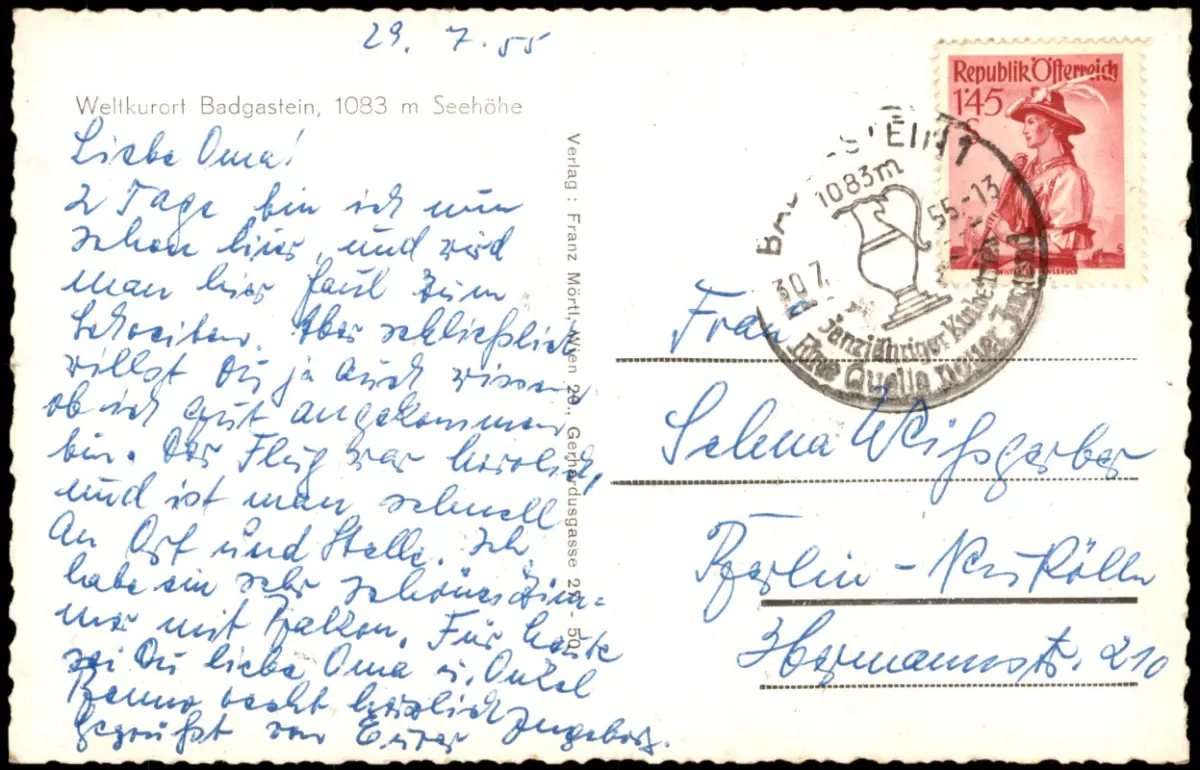 29. 7. 55
Weltkurort Badgastein, 1083 m Seehöhe
Liebe Oma!
2 Tage bin ich nun
schon hier, und wird
man hier faul zum
Schreiben. Aber schließlich
willst Du ja auch wissen
ob ich gut angekommen
bin. Der Flug war herrlich,
und ist man schnell
an Ort und Stelle. Ich
habe ein sehr schönes Zim=
mer mit Balkon. Für heute
sei Du liebe Oma u. Onkel
Benno recht herzlich
gegrüßt von Eurer Ingeborg.
Verlag: Franz Mörtl, Wien 20., Gerhardusgasse 2 - 50
Republik Österreich
1'45
S
1083m
30.7. 55-13
Ganzjähriger Kurbetrieb
Eine Quelle neuer Jugend
Frau
Selma Weißgerber
Berlin-Neukölln
Hermannstr. 210